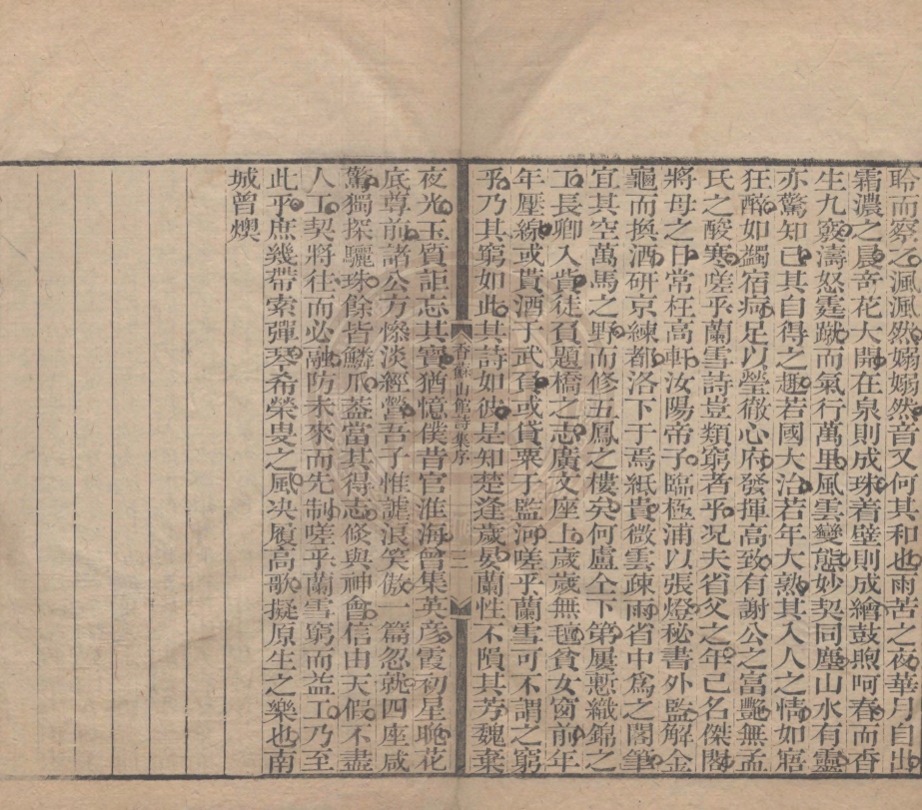 聆而察之渢渢然嫋嫋然音又何其和也雨苦之夜華月自出
霜濃之晨奇花大開在泉則成珠着壁則成繪鼓煦呵春而香
生九竅濤怒霆蹴而氣行萬里風雲變態妙契同塵山水有靈
亦驚知已其自得之趣若國大治若年大熟其入人之情如寤
狂醉如蠲宿疴足以瑩徹心府發揮高致有謝公之富艷無孟
氏之酸寒嗟乎蘭雪詩豈類窮者乎况夫省父之年已名傑閣
將母之日常枉高軒汝陽帝子臨極浦以張燈秘書外監解金
龜而換酒研京練都洛下于焉紙貴微雲疎雨省中爲之閣筆
宜其空萬馬之野而修五鳳之樓矣何盧仝下第屢慙織錦之
工長卿入貲徒負題橋之志廣文座上歲歲無氊貧女窗前年
年壓線或貰酒于武負或貸粟于監河嗟乎蘭雪可不謂之窮
乎乃其窮如此其詩如彼是知楚逢歲晏蘭性不隕其芳魏棄
香蘇山館詩集序 二
夜光玉質詎忘其寶猶憶僕昔官淮海曾集英彥霞初星晚花
底尊前諸公方慘淡經營吾子惟謔浪笑傲一篇忽就四座咸
驚獨探驪珠餘皆鱗爪蓋當其得志倏與神會信由天假不盡
人工契將往而必融防未來而先制嗟乎蘭雪窮而益工乃至
此乎庶幾帶索彈琴希榮叟之風决履高歌擬原生之樂也南
城曾燠